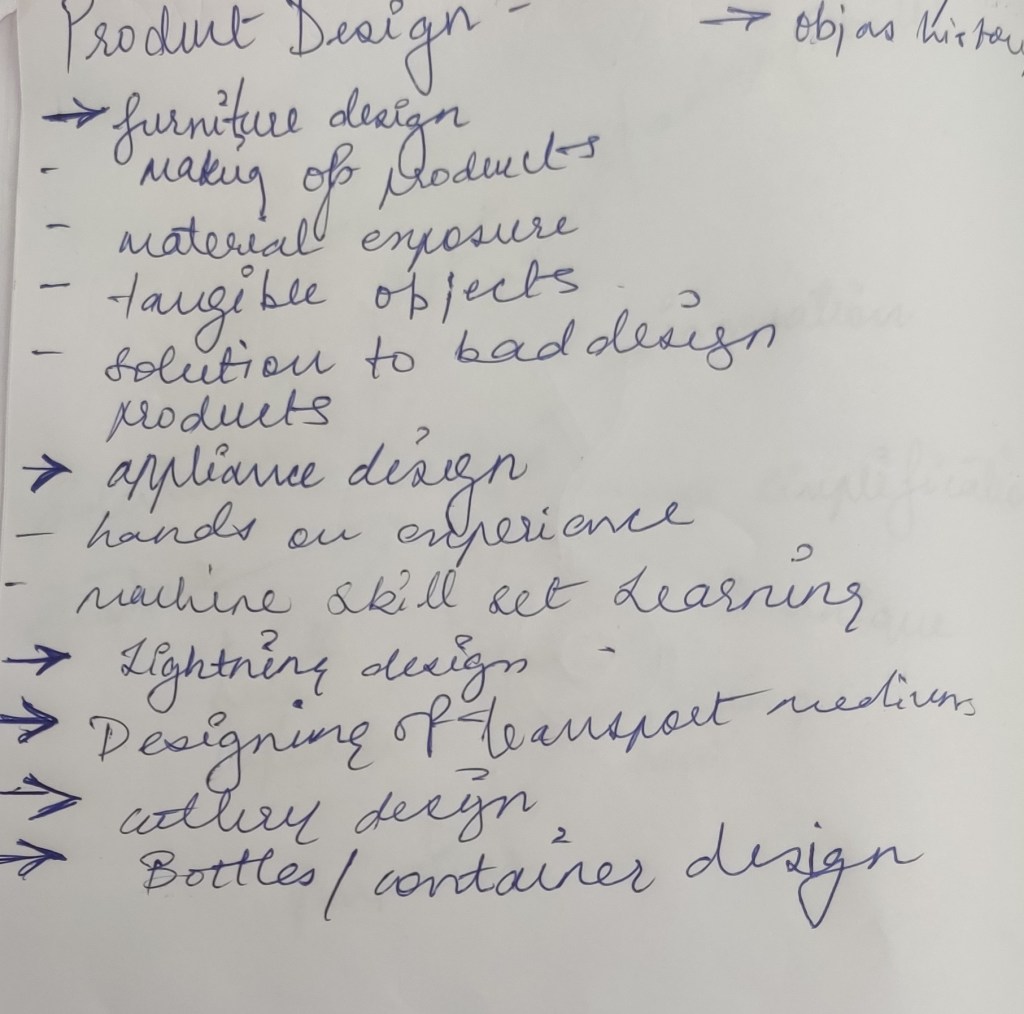 Product Design -
→ obj as
→ furniture design
- Making of products
- material exposure
- tangible objects
- solution to bad design
products
→ appliance design
- hands on experience
- machine skill set learning
→ Lightning design -
→ Designing of transport mediums
→ cutlery design
→ Bottles / container design